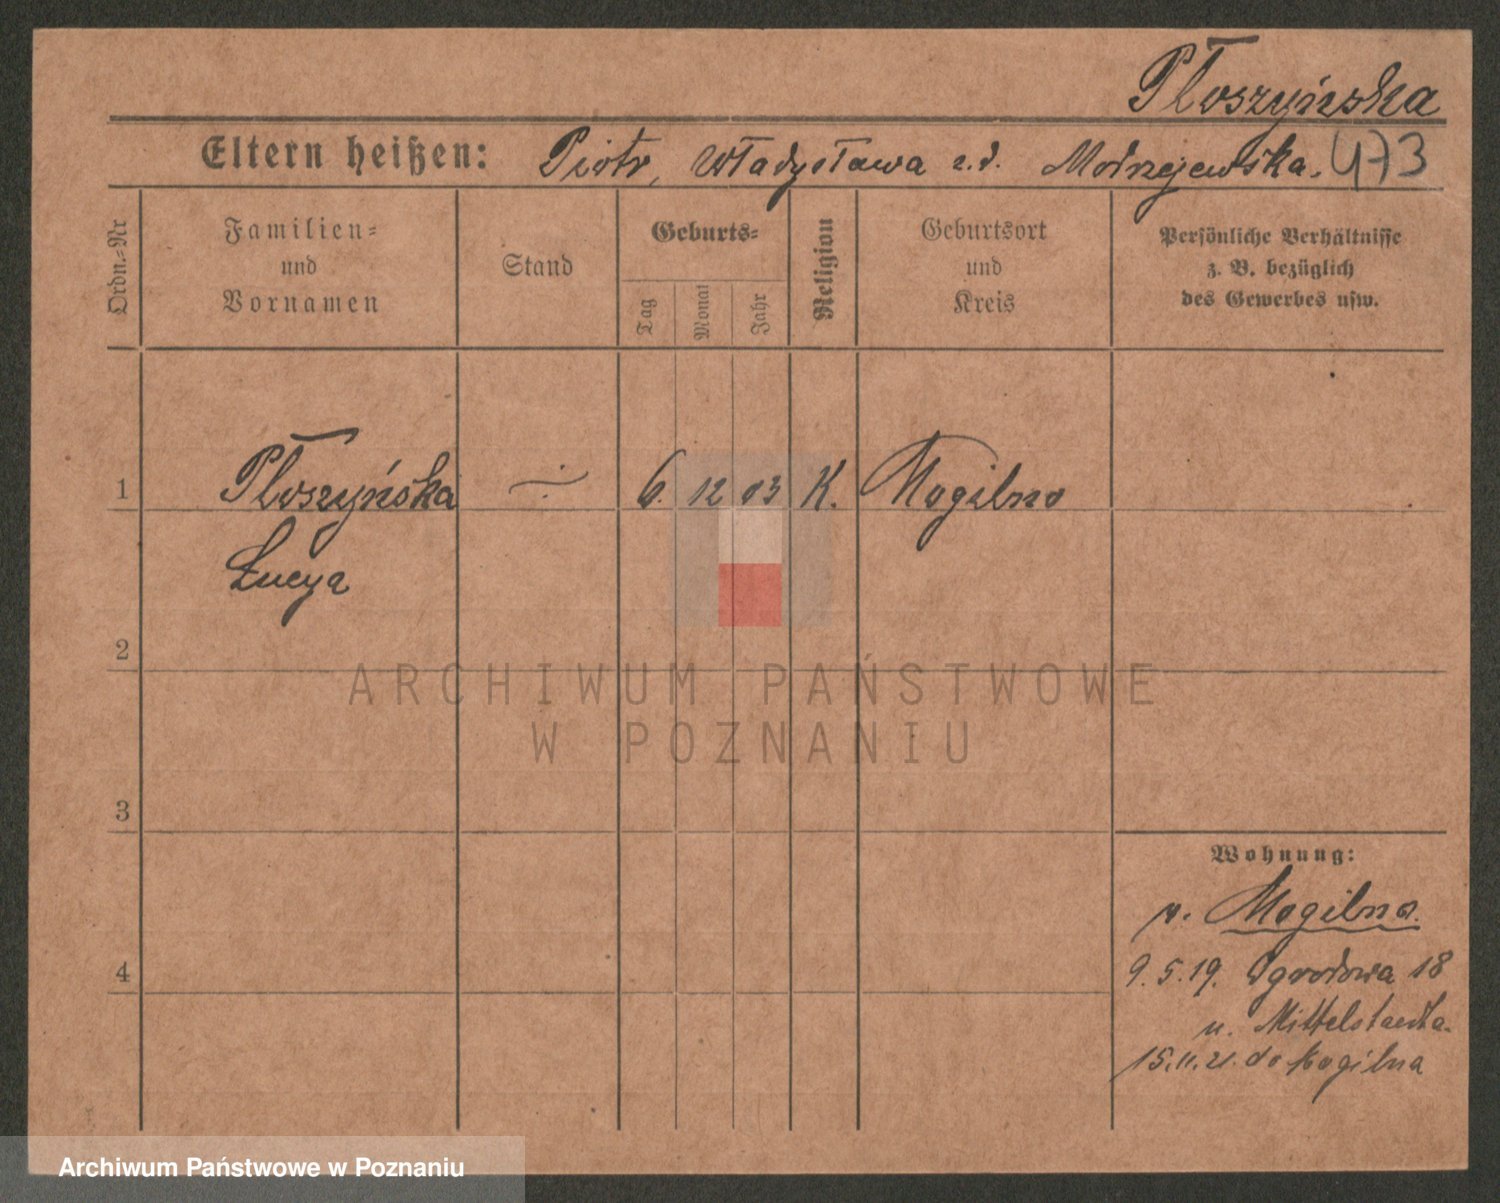 Płoszyńska
Eltern heißen: Piotr, Władysława z.d. Modrzejewska. 473
Ordn.-Nr
Familien-
und
Vornamen
Stand
Geburts-
Tag
Monat
Jahr
Religion
Geburtsort
und
Kreis
Persönliche Verhältnisse
z. B. bezüglich
des Gewerbes usw.
1 Płoszyńska ÷ 6. 12 03 K. Mogilno
Łucya
2
ARCHIWUM PAŃSTWOWE
W POZNANIU
3
Wohnung:
Mogilno.
4
9.5.19. Ogrodowa 18
u. Mittelstaedta.
15.11.21. do Mogilna
Archiwum Państwowe w Poznaniu